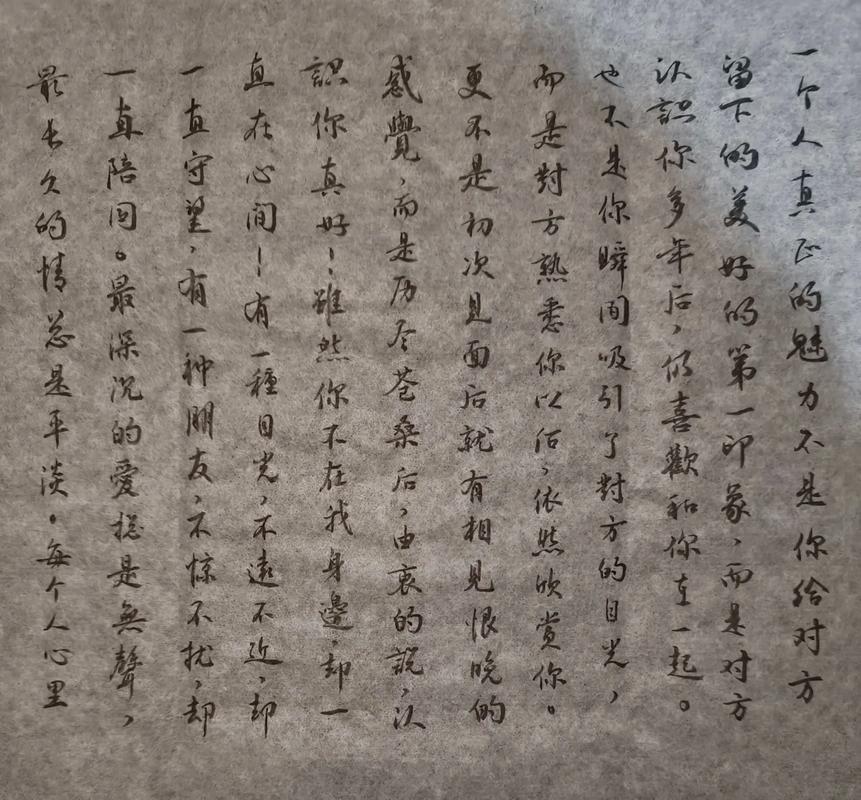 一个人真正的魅力不是你给对方
留下的美好的第一印象，而是对方
认識你多年后，仍喜歡和你在一起。
也不是你瞬间吸引了對方的目光，
而是對方熟悉你以后，依然欣赏你。
更不是初次見面后就有相見恨晚的
感覺，而是历尽苍桑后，由衷的説，认
識你真好！雖然你不在我身邊，却一
直在心间！有一種目光，不遠不近，却
一直守望，有一种朋友，不惊不扰，却
一直陪同。最深沉的愛總是無聲，
最长久的情总是平淡。每个人心里